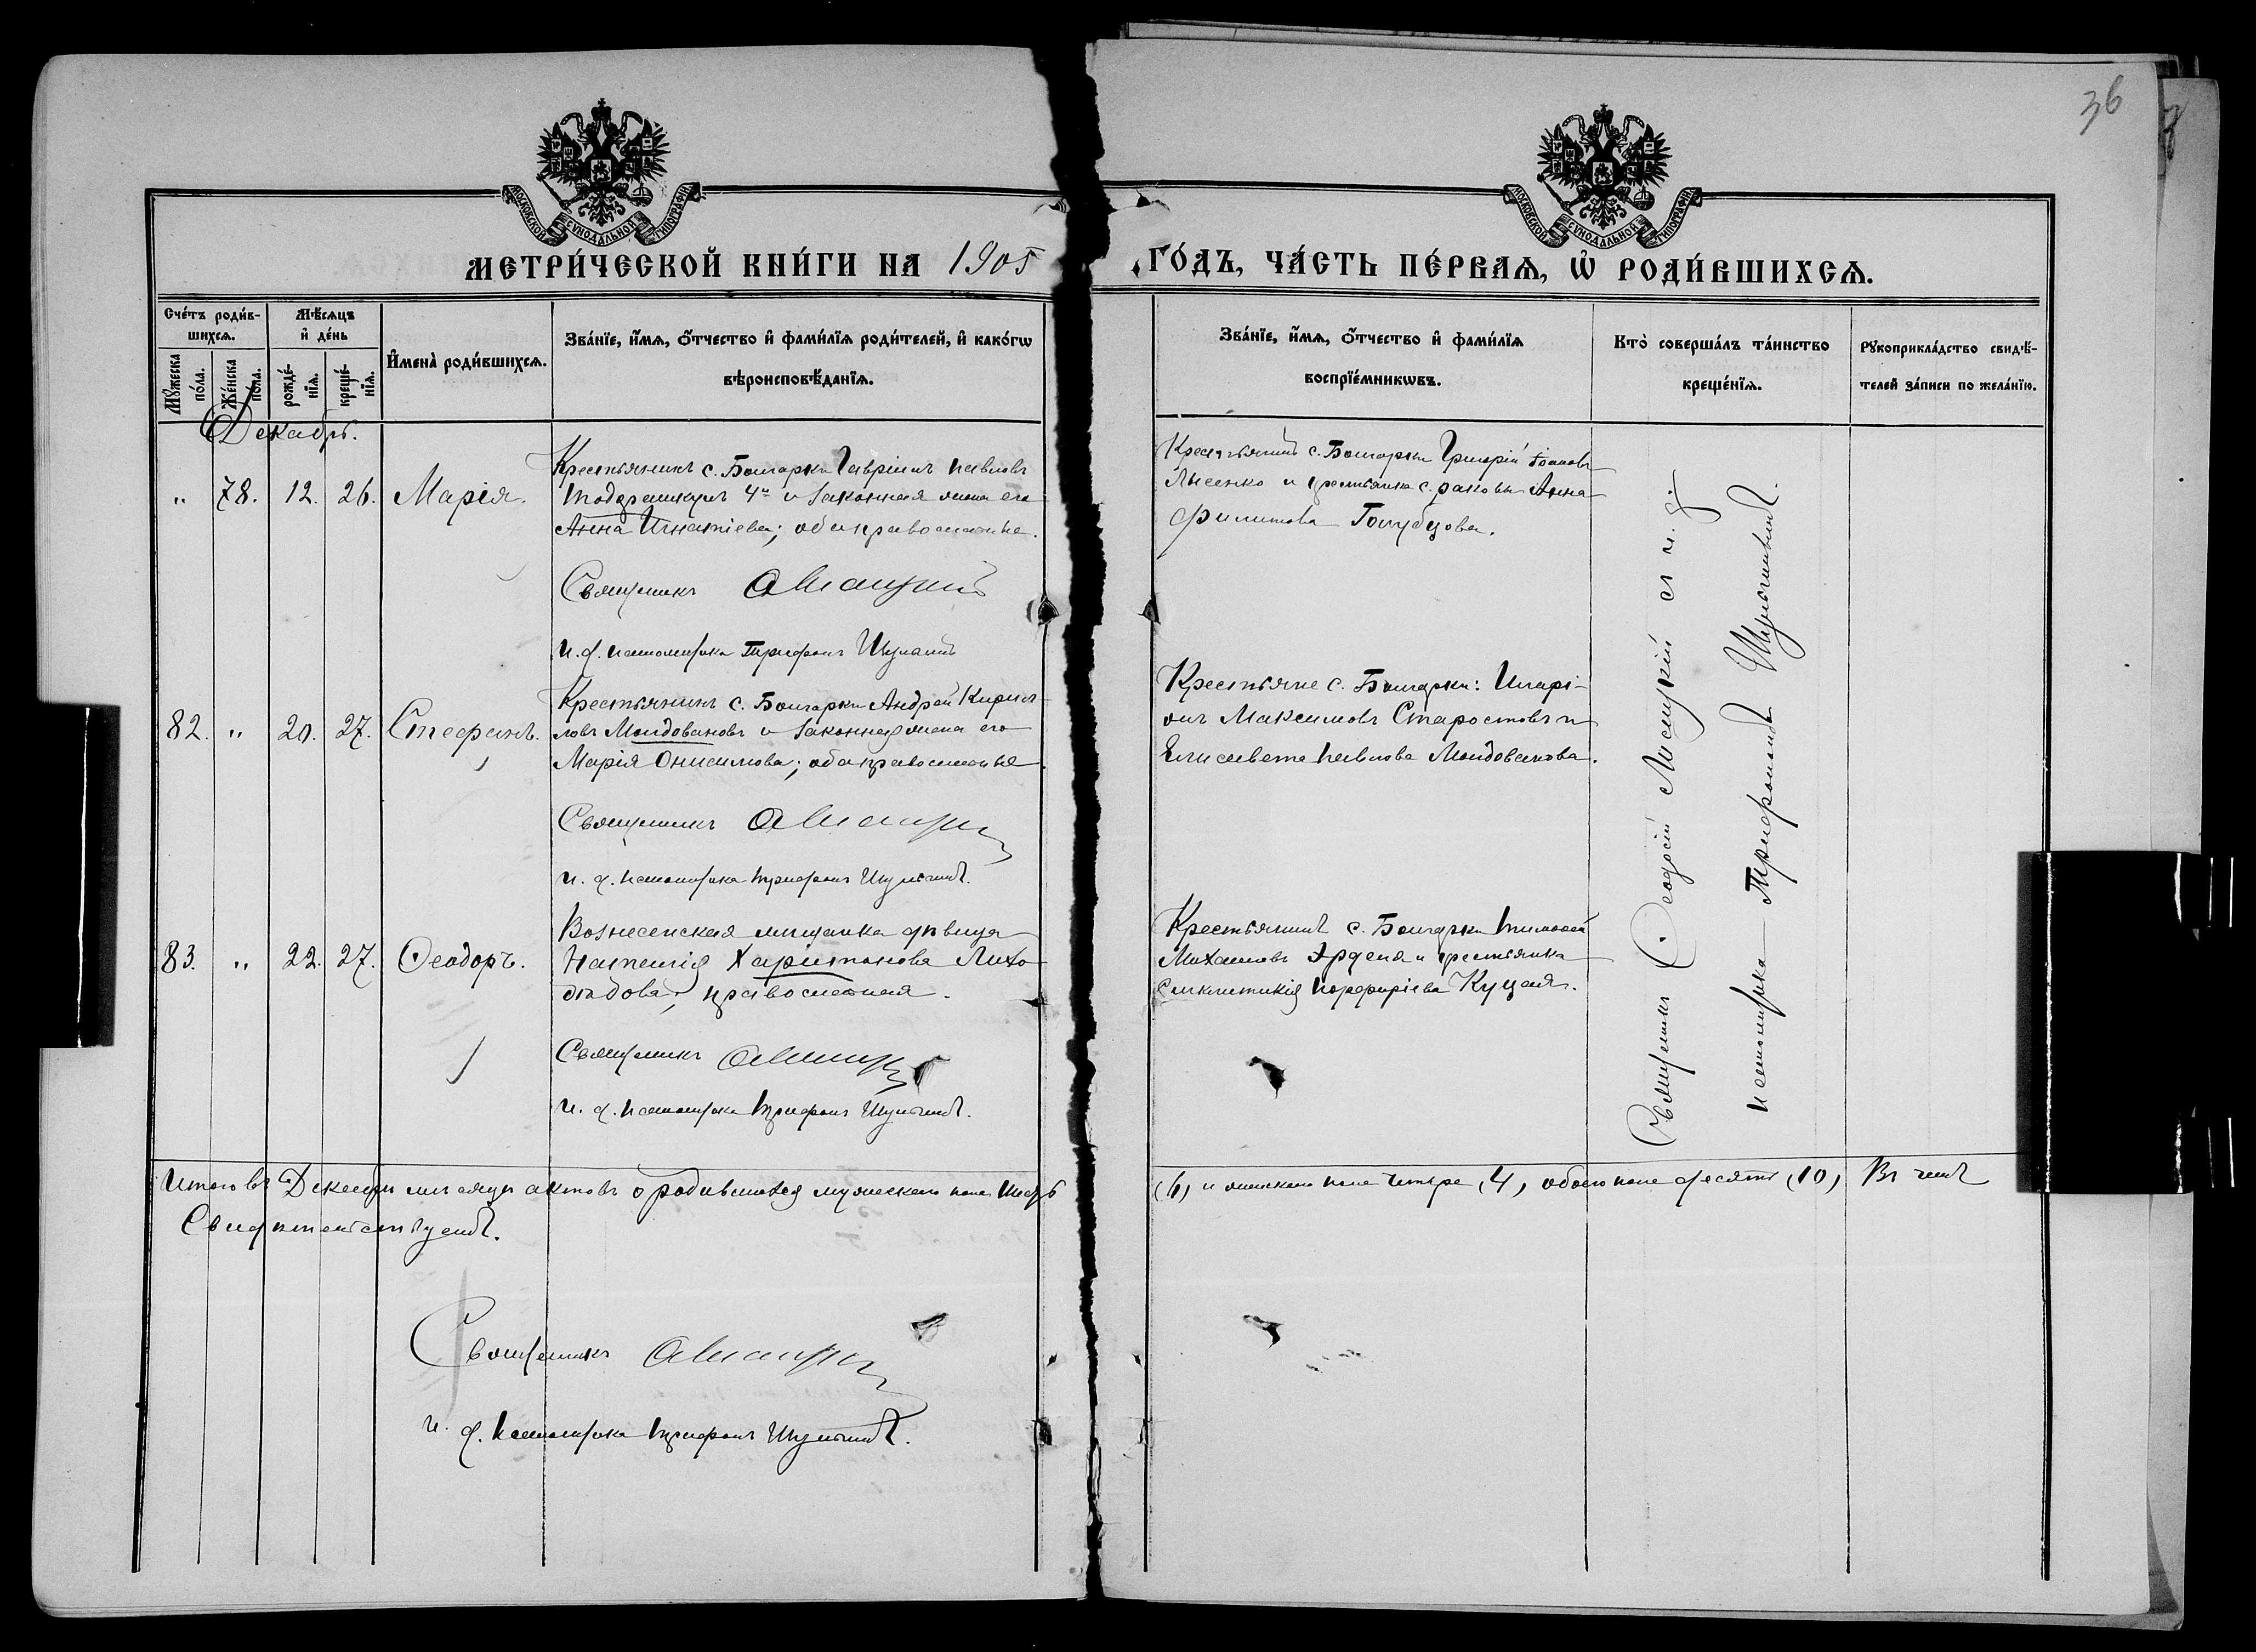 36
МОСКОВСКОЙ СѴНОДАЛЬНОЙ ТИПОГРАФІИ
МОСКОВСКОЙ СѴНОДАЛЬНОЙ ТИПОГРАФІИ
МЕТРИ́ЧЕСКОЙ КНИ́ГИ НА 1905
ГО́ДЪ, ЧА́СТЬ ПЕ́РВАѦ, Ѡ҆ РОДИ́ВШИХСѦ.
Сче́тъ роди́в-
шихсѧ.
Мꙋ́жеска по́ла.
Же́нска по́ла.
Мѣ́сѧцъ
и҆ де́нь
рожде́-
нїѧ.
креще́-
нїѧ.
И҆мена̀ роди́вшихсѧ.
Зва́нїе, и҆́мѧ, ѻ҆́тчество и҆ фами́лїѧ роди́телей, и҆ како́гѡ
вѣроисповѣ́данїѧ.
Зва́нїе, и҆́мѧ, ѻ҆́тчество и҆ фами́лїѧ
воспрїе́мникѡвъ.
Кто̀ соверша́лъ та́инство
креще́нїѧ.
Рꙋкоприкла́дство свидѣ́-
телей за́писи по жела́нїю.
Декабрь.
„ 78. 12. 26. Марія.
Крестьянинъ с. Болгарки Гавріилъ Павловъ
и законная жена его
Анна Игнатіева; оба православные.
Священникъ
И. д. псаломщика Трифонъ
Крестьянинъ с. Болгарки Григорій Іоановъ
Лысенко и крестьянка с. Раковы Анна
Филипова Голубцова.
82. „ 20. 27. Стефанъ.
Крестьянинъ с. Болгарки Андрей Кирил-
ловъ Молдовановъ и законная жена его
Марія Онисимова; оба православные.
Священникъ
И. д. псаломщика Трифонъ
Крестьяне с. Болгарки: Иларі-
онъ Максимовъ Старостовъ и
Елисавета Павлова Молдованова.
83. „ 22. 27. Ѳеодоръ.
Вознесенская мещанка дѣвица
Харитонова Лихо-
дѣдова; православная.
Священникъ
И. д. псаломщика Трифонъ
Крестьянинъ с. Болгарки Тимоѳей
Михайловъ и крестьянка
Синклитикія Порфиріева Куцая.
Священникъ Ѳеодосій
псаломщика Трифонъ
Итого въ Декабрѣ месяцѣ актовъ о родившихся мужескаго пола шесть
(6) и женскаго пола четыре (4), обоего пола десять (10) Въ чемъ
Свидѣтельствуемъ.
Священникъ
И. д. Псаломщика Трифонъ